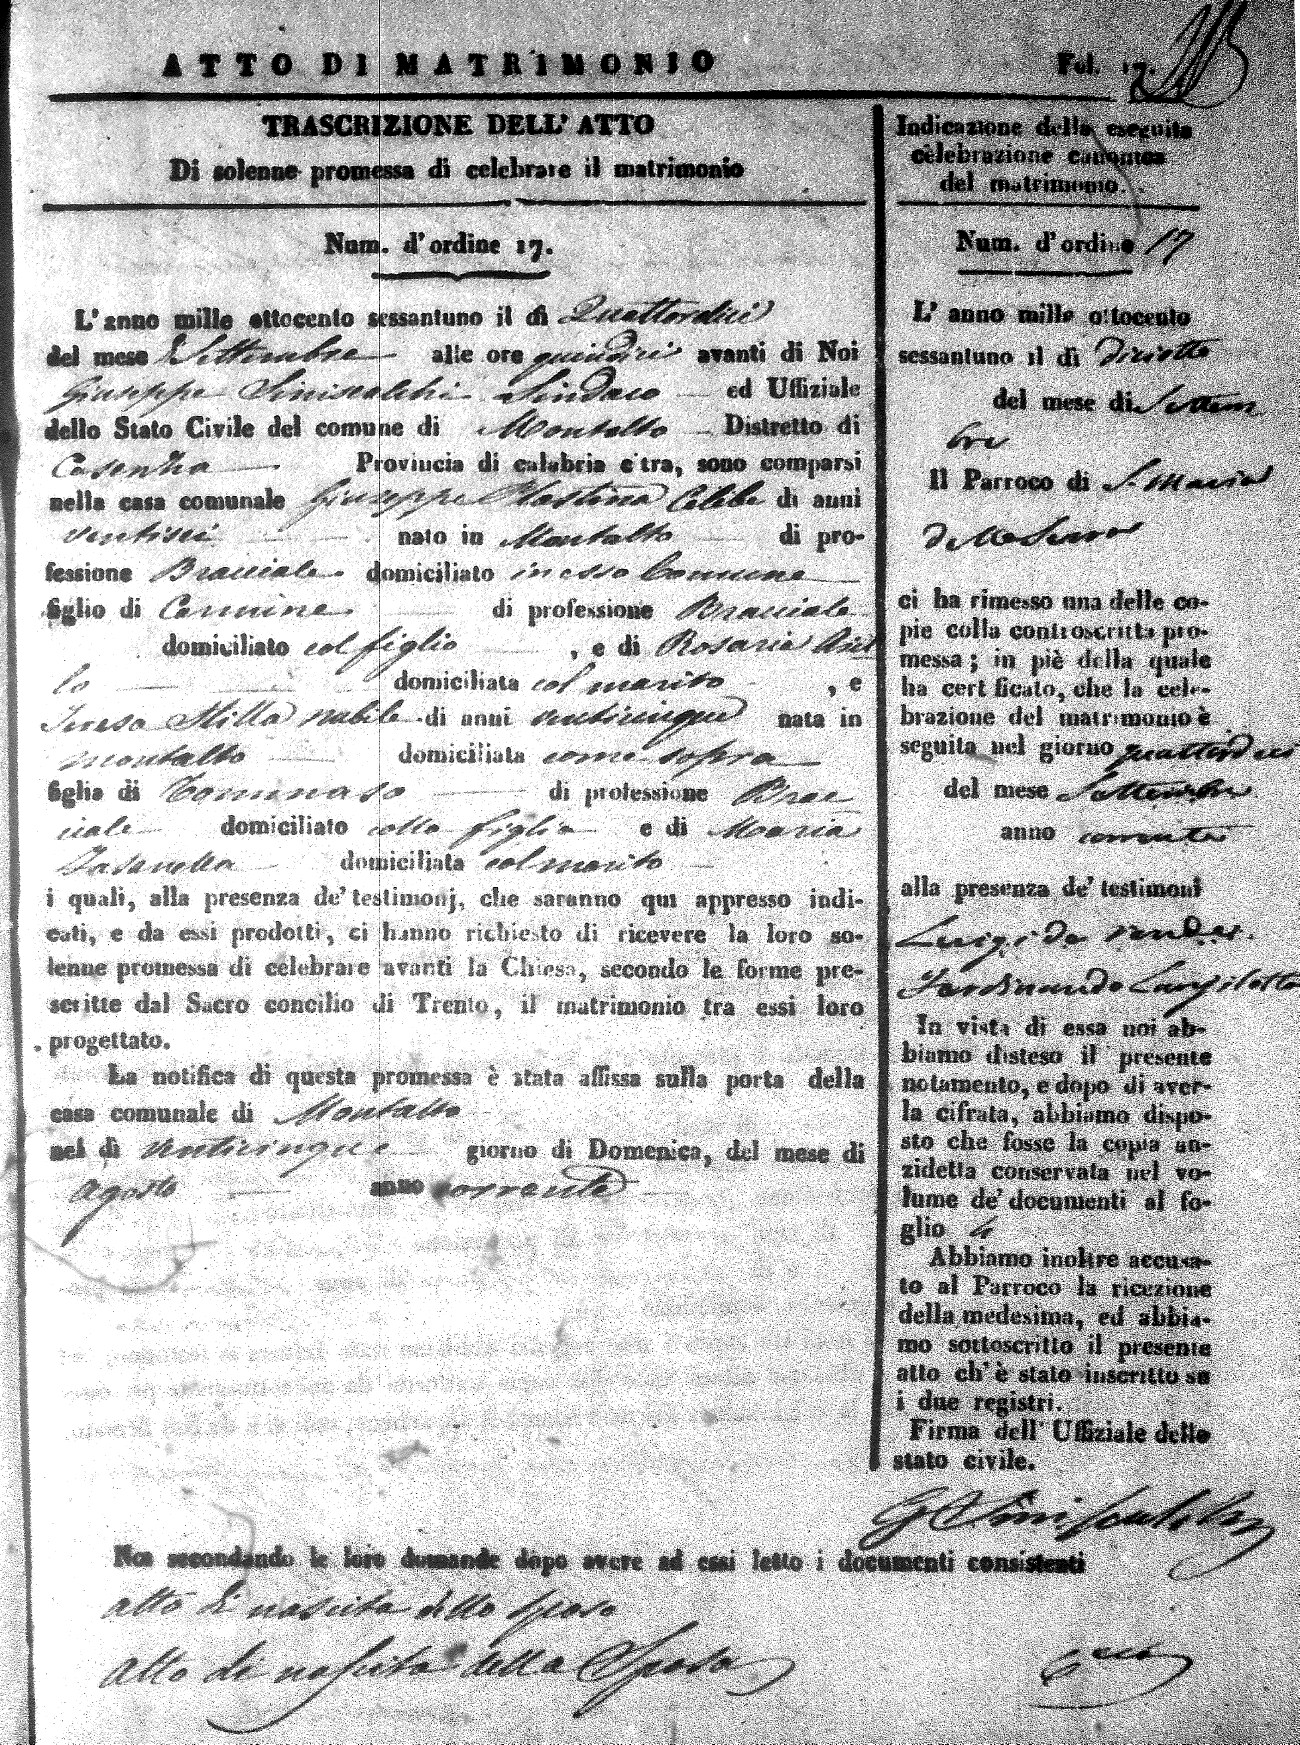 ATTO DI MATRIMONIO
Fol. 17.
TRASCRIZIONE DELL' ATTO
Di solenne promessa di celebrare il matrimonio
Num. d'ordine 17.
L'anno mille ottocento sessantuno il dì Quattordici
del mese Settembre alle ore quindici avanti di Noi
Giuseppe Siniscalchi Sindaco ed Uffiziale
dello Stato Civile del comune di Montalto Distretto di
Cosenza Provincia di calabria citra, sono comparsi
nella casa comunale Giuseppe Celibe di anni
ventisei nato in Montalto di pro-
fessione Bracciale domiciliato in esso Comune
figlio di Carmine di professione Bracciale
domiciliato col figlio , e di Rosaria Aiel
lo domiciliata col marito , e
Teresa Stilla nubile di anni venticinque nata in
Montalto domiciliata come sopra
figlia di Tommaso di professione Brac
ciale domiciliato colla figlia e di Maria
domiciliata col marito
i quali, alla presenza de' testimonj, che saranno qui appresso indi-
cati, e da essi prodotti, ci hanno richiesto di ricevere la loro so-
lenne promessa di celebrare avanti la Chiesa, secondo le forme pre-
scritte dal Sacro concilio di Trento, il matrimonio tra essi loro
progettato.
La notifica di questa promessa è stata affissa sulla porta della
casa comunale di Montalto
nel dì venticinque giorno di Domenica, del mese di
Agosto anno corrente
Noi secondando le loro domande dopo avere ad essi letto i documenti consistenti
atto di nascita dello sposo
atto di nascita della Sposa
Indicazione della eseguita
celebrazione canonica
del matrimonio.
Num. d'ordine 17
L'anno mille ottocento
sessantuno il dì diciotto
del mese di Settem
bre
Il Parroco di S. Maria
della Serra
ci ha rimesso una delle co-
pie colla controscritta pro-
messa; in piè della quale
ha certificato, che la cele-
brazione del matrimonio è
seguita nel giorno quattordici
del mese Settembre
anno corrente
alla presenza de' testimoni
Luigi de
Ferdinando
In vista di essa noi ab-
biamo disteso il presente
notamento, e dopo di aver-
la cifrata, abbiamo dispo-
sto che fosse la copia an-
zidetta conservata nel vo-
lume de' documenti al fo-
glio 4
Abbiamo inoltre accusa-
to al Parroco la ricezione
della medesima, ed abbia-
mo sottoscritto il presente
atto ch' è stato inscritto su
i due registri.
Firma dell' Uffiziale dello
stato civile.
G Siniscalchi